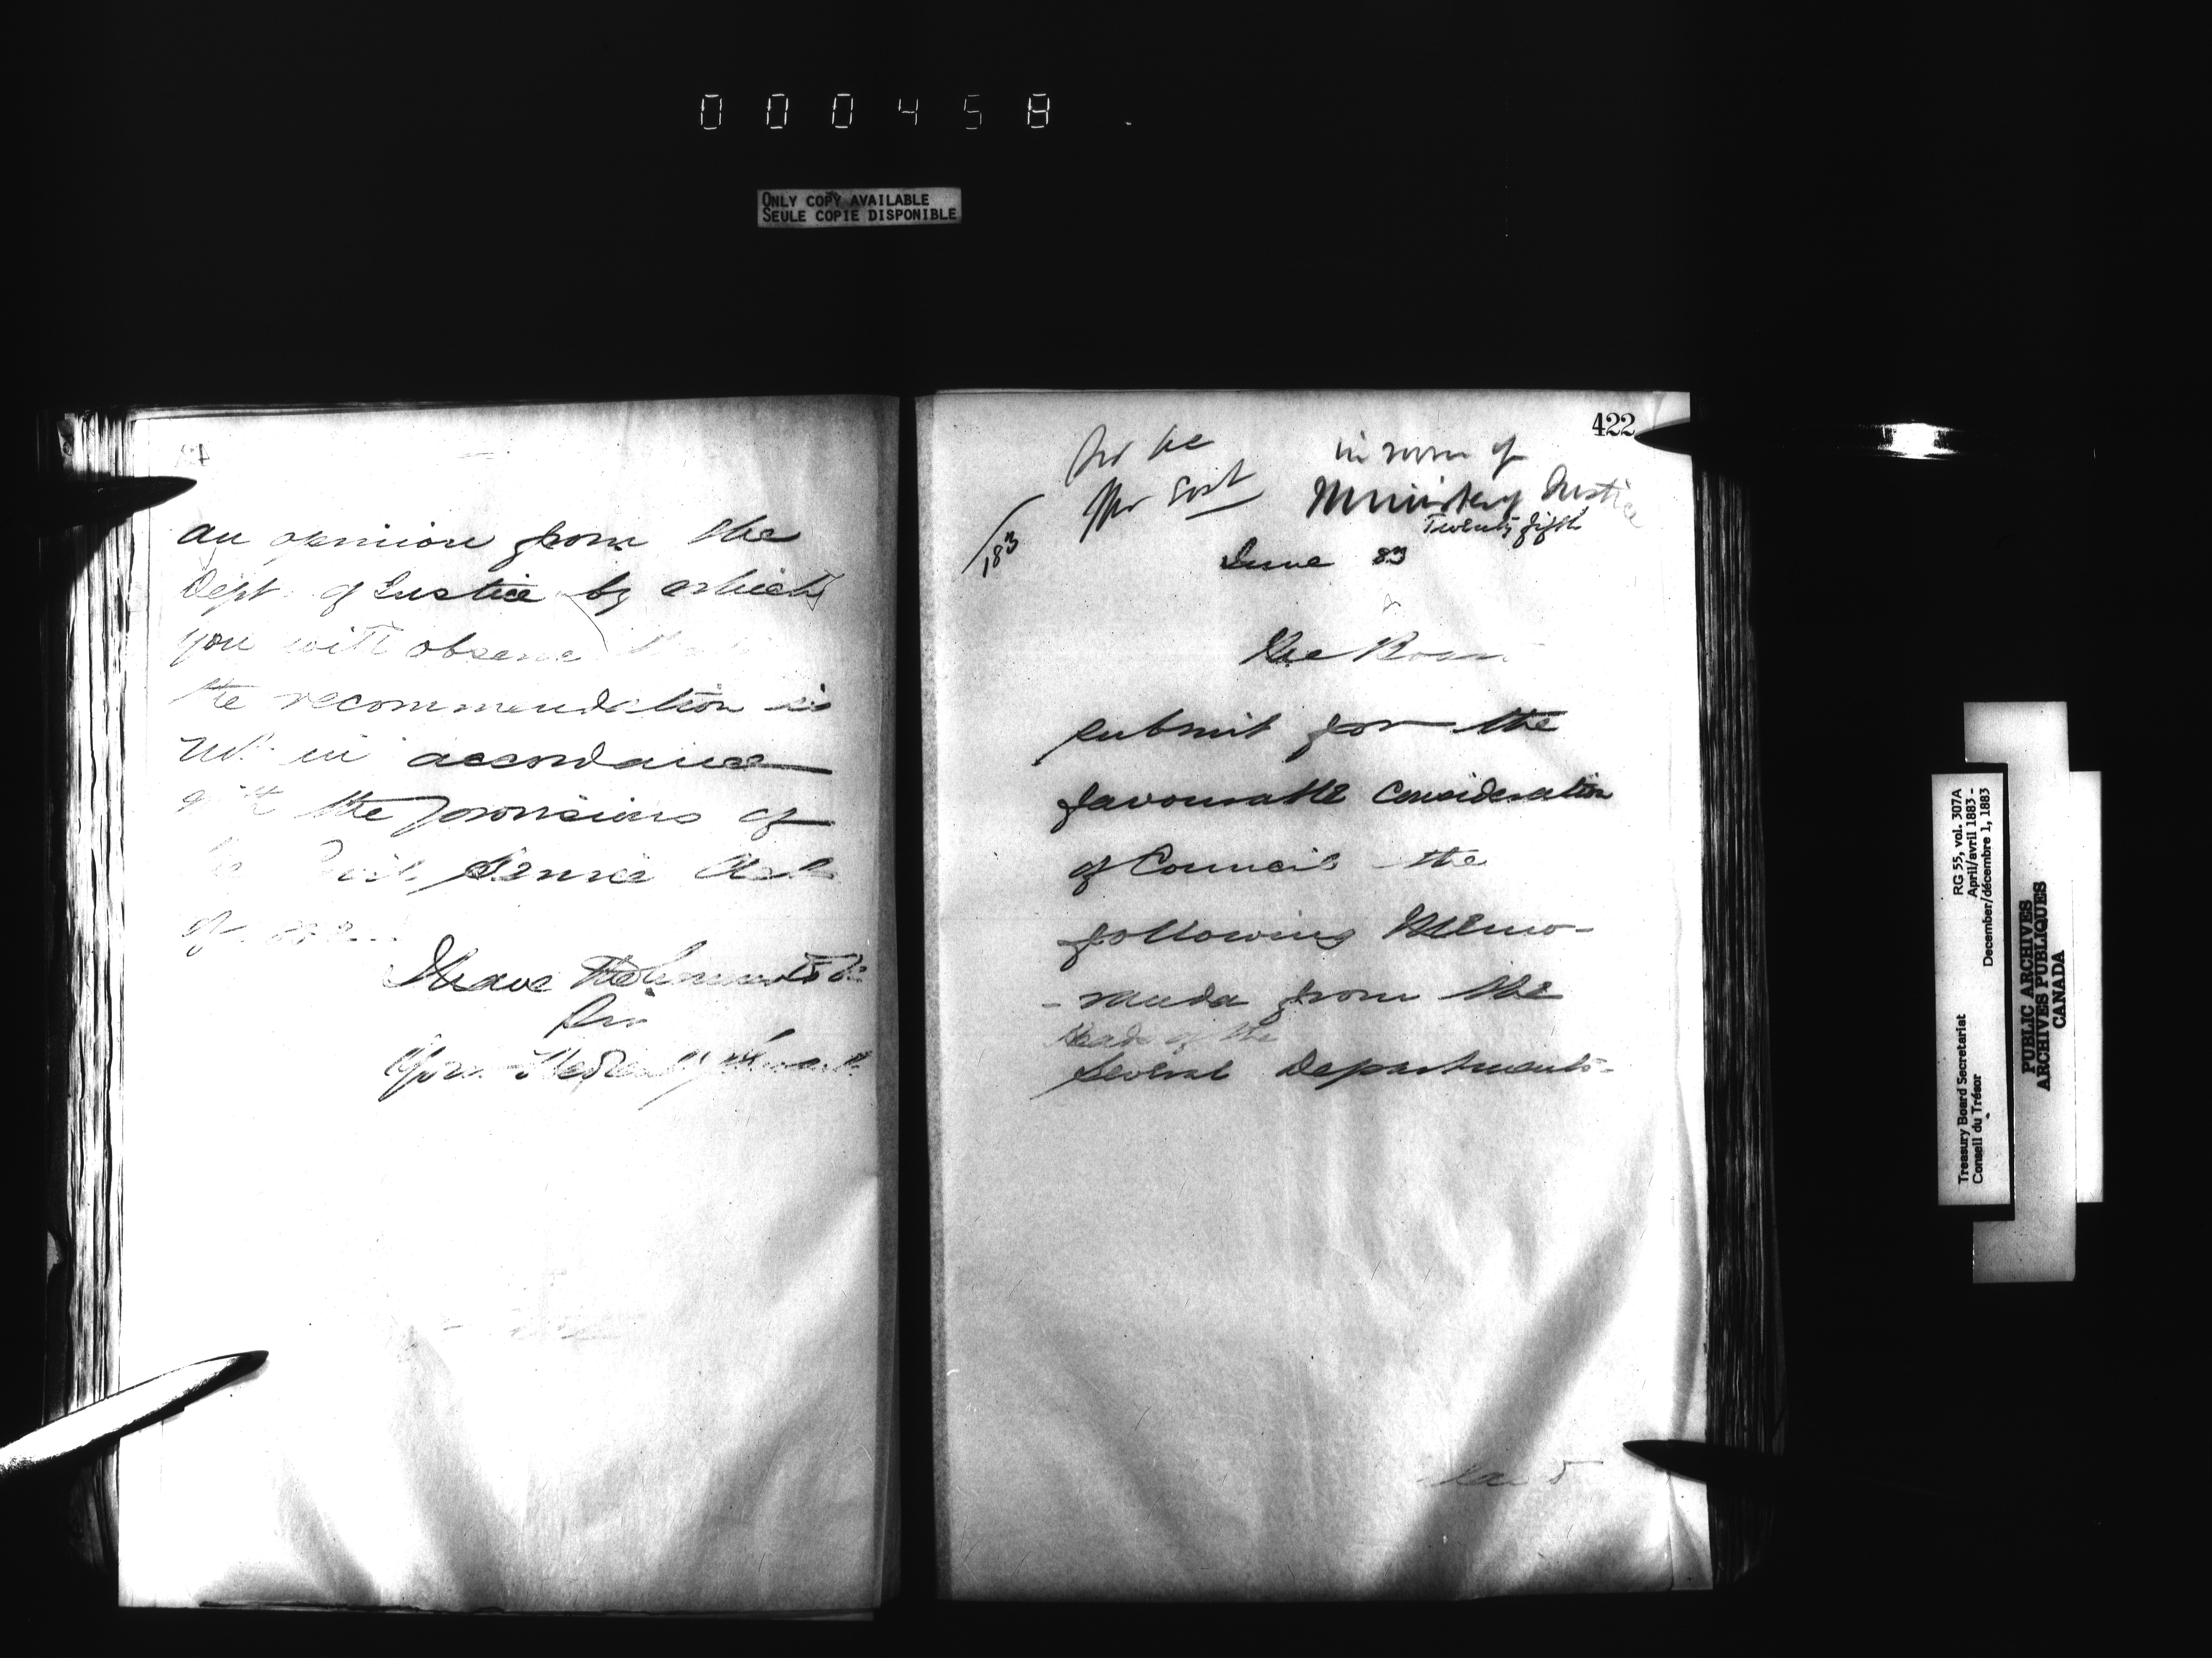 000458
ONLY COPY AVAILABLE
SEULE COPIE DISPONIBLE
an opinion from the
Dept. of Justice by which
you will observe
the recommendation is
not in accordance
with the provisions of
Service Act
of
I have the honour to be
Sir
Your
422
in room of
Minister of Justice
Twenty fifth
June 83
183
The Board
submit for the
favourable consideration
of Council the
following Memo-
-randa from the
Heads of the
several Departments-
Treasury Board Secretariat RG 55, vol. 307A
Conseil du Trésor April/avril 1883 -
December/décembre 1, 1883
PUBLIC ARCHIVES
ARCHIVES PUBLIQUES
CANADA